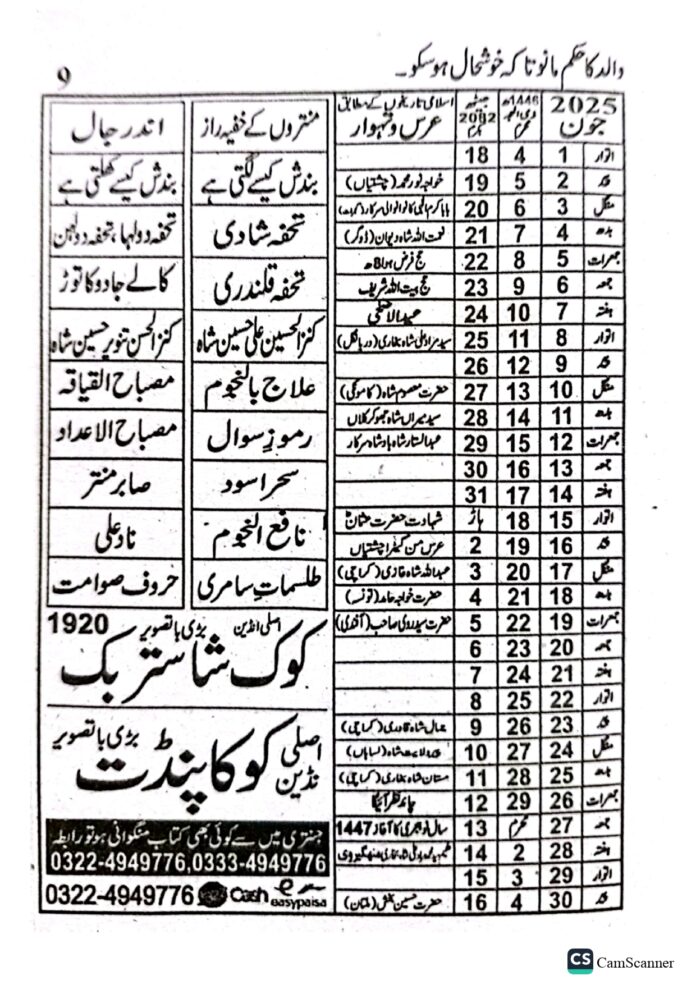 والد کا حکم مانو تا کہ خوشحال ہو سکو۔
9
2025 جون
1446ھ ذی الحجہ محرم
جیٹھ 2082 ہاڑ
اسلامی تاریخوں کے مطابق عرس و تہوار
اتوار 1 4 18
پیر 2 5 19 خواجہ نور محمد (چشتیاں)
منگل 3 6 20
بدھ 4 7 21 نعمت اللہ شاہ دیوان
جمعرات 5 8 22 حج فرض ہوا 8ھ
جمعہ 6 9 23 حج بیت اللہ شریف
ہفتہ 7 10 24 عید الاضحی
اتوار 8 11 25
پیر 9 12 26
منگل 10 13 27 حضرت معصوم شاہ (کامونکی)
بدھ 11 14 28 سید میراں شاہ
جمعرات 12 15 29 عبدالستار شاہ بادشاہ سرکار
جمعہ 13 16 30
ہفتہ 14 17 31
اتوار 15 18 ہاڑ شہادت حضرت عثمانؓ
پیر 16 19 2 عرس
منگل 17 20 3 عبداللہ شاہ غازی (کراچی)
بدھ 18 21 4 حضرت خواجہ حامد (تونسہ)
جمعرات 19 22 5
جمعہ 20 23 6
ہفتہ 21 24 7
اتوار 22 25 8
پیر 23 26 9 شاہ قادری (کراچی)
منگل 24 27 10
بدھ 25 28 11 مستان شاہ بخاری (کراچی)
جمعرات 26 29 12 چاند نظر آئیگا
جمعہ 27 محرم 13 سال نو ہجری کا آغاز 1447
ہفتہ 28 2 14
اتوار 29 3 15
پیر 30 4 16 حضرت حسین بخش (ملتان)
منتروں کے خفیہ راز
اندر جال
بندش کیسے لگتی ہے
بندش کیسے کھلتی ہے
تحفہ شادی
تحفہ دولہا، تحفہ دولہن
تحفہ قلندری
کالے جادو کا توڑ
کنز الحسین علی حسین شاہ
کنز الحسن تنویر حسین شاہ
علاج بالنجوم
مصباح القیافہ
رموزِ سوال
مصباح الاعداد
سحر اسود
صابر منتر
نافع النجوم
ناد علی
طلسماتِ سامری
حروف صوامت
اصلی انڈین بڑی باتصویر 1920
کوک شاستر بک
اصلی انڈین کوکا پنڈت بڑی باتصویر
جنتری میں سے کوئی بھی کتاب منگوانی ہو تو رابطہ
0322-4949776,0333-4949776
0322-4949776 Cash easypaisa
CS CamScanner